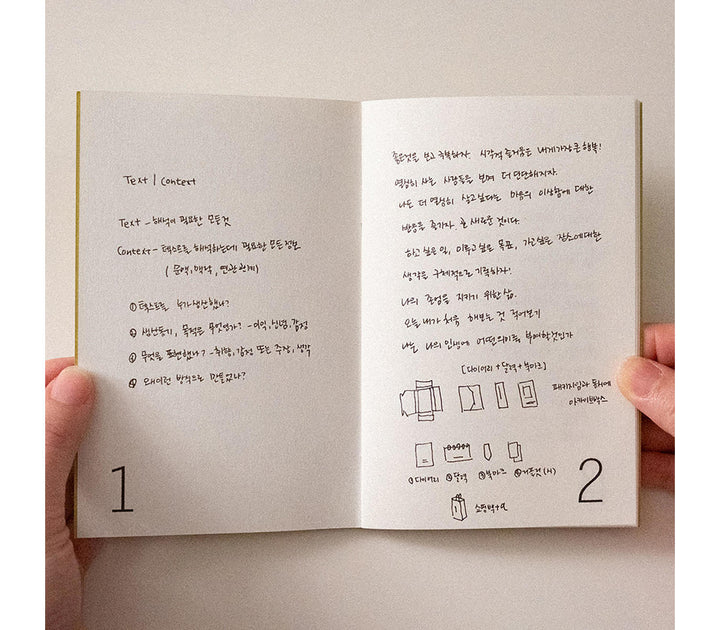 Text | Context
Text - 해석이 필요한 모든것
Context - 텍스트를 해석하는데 필요한 모든 정보
( 문맥, 맥락, 연관관계 )
① 텍스트를 누가 생산했나?
② 생산동기, 목적은 무엇인가? - 이익, 신념, 감정
③ 무엇을 표현했나? - 취향, 감정 또는 주장, 생각
④ 왜 이런 방식으로 만들었나?
1
좋은것을 보고 극복하자. 시각적 즐거움은 내게 가장 큰 행복!
열심히 사는 사람들을 보며 더 단단해지자.
나는 더 열심히 살고싶다는 마음의 이상함에 대한
반응을 즐기자. 늘 새로운 것이다.
하고 싶은 일, 이루고 싶은 목표, 가고 싶은 장소에 대한
생각을 구체적으로 기록하자!
나의 존엄을 지키기 위한 삶.
오늘 내가 처음 해보는 것 적어보기
나는 나의 인생에 어떤 의미를 부여할 것인가
[다이어리 + 달력 + 북마크]
패키지임과 동시에
아카이브박스
①다이어리 ②달력 ③북마크 ④거든것(시)
쇼핑백+α
2